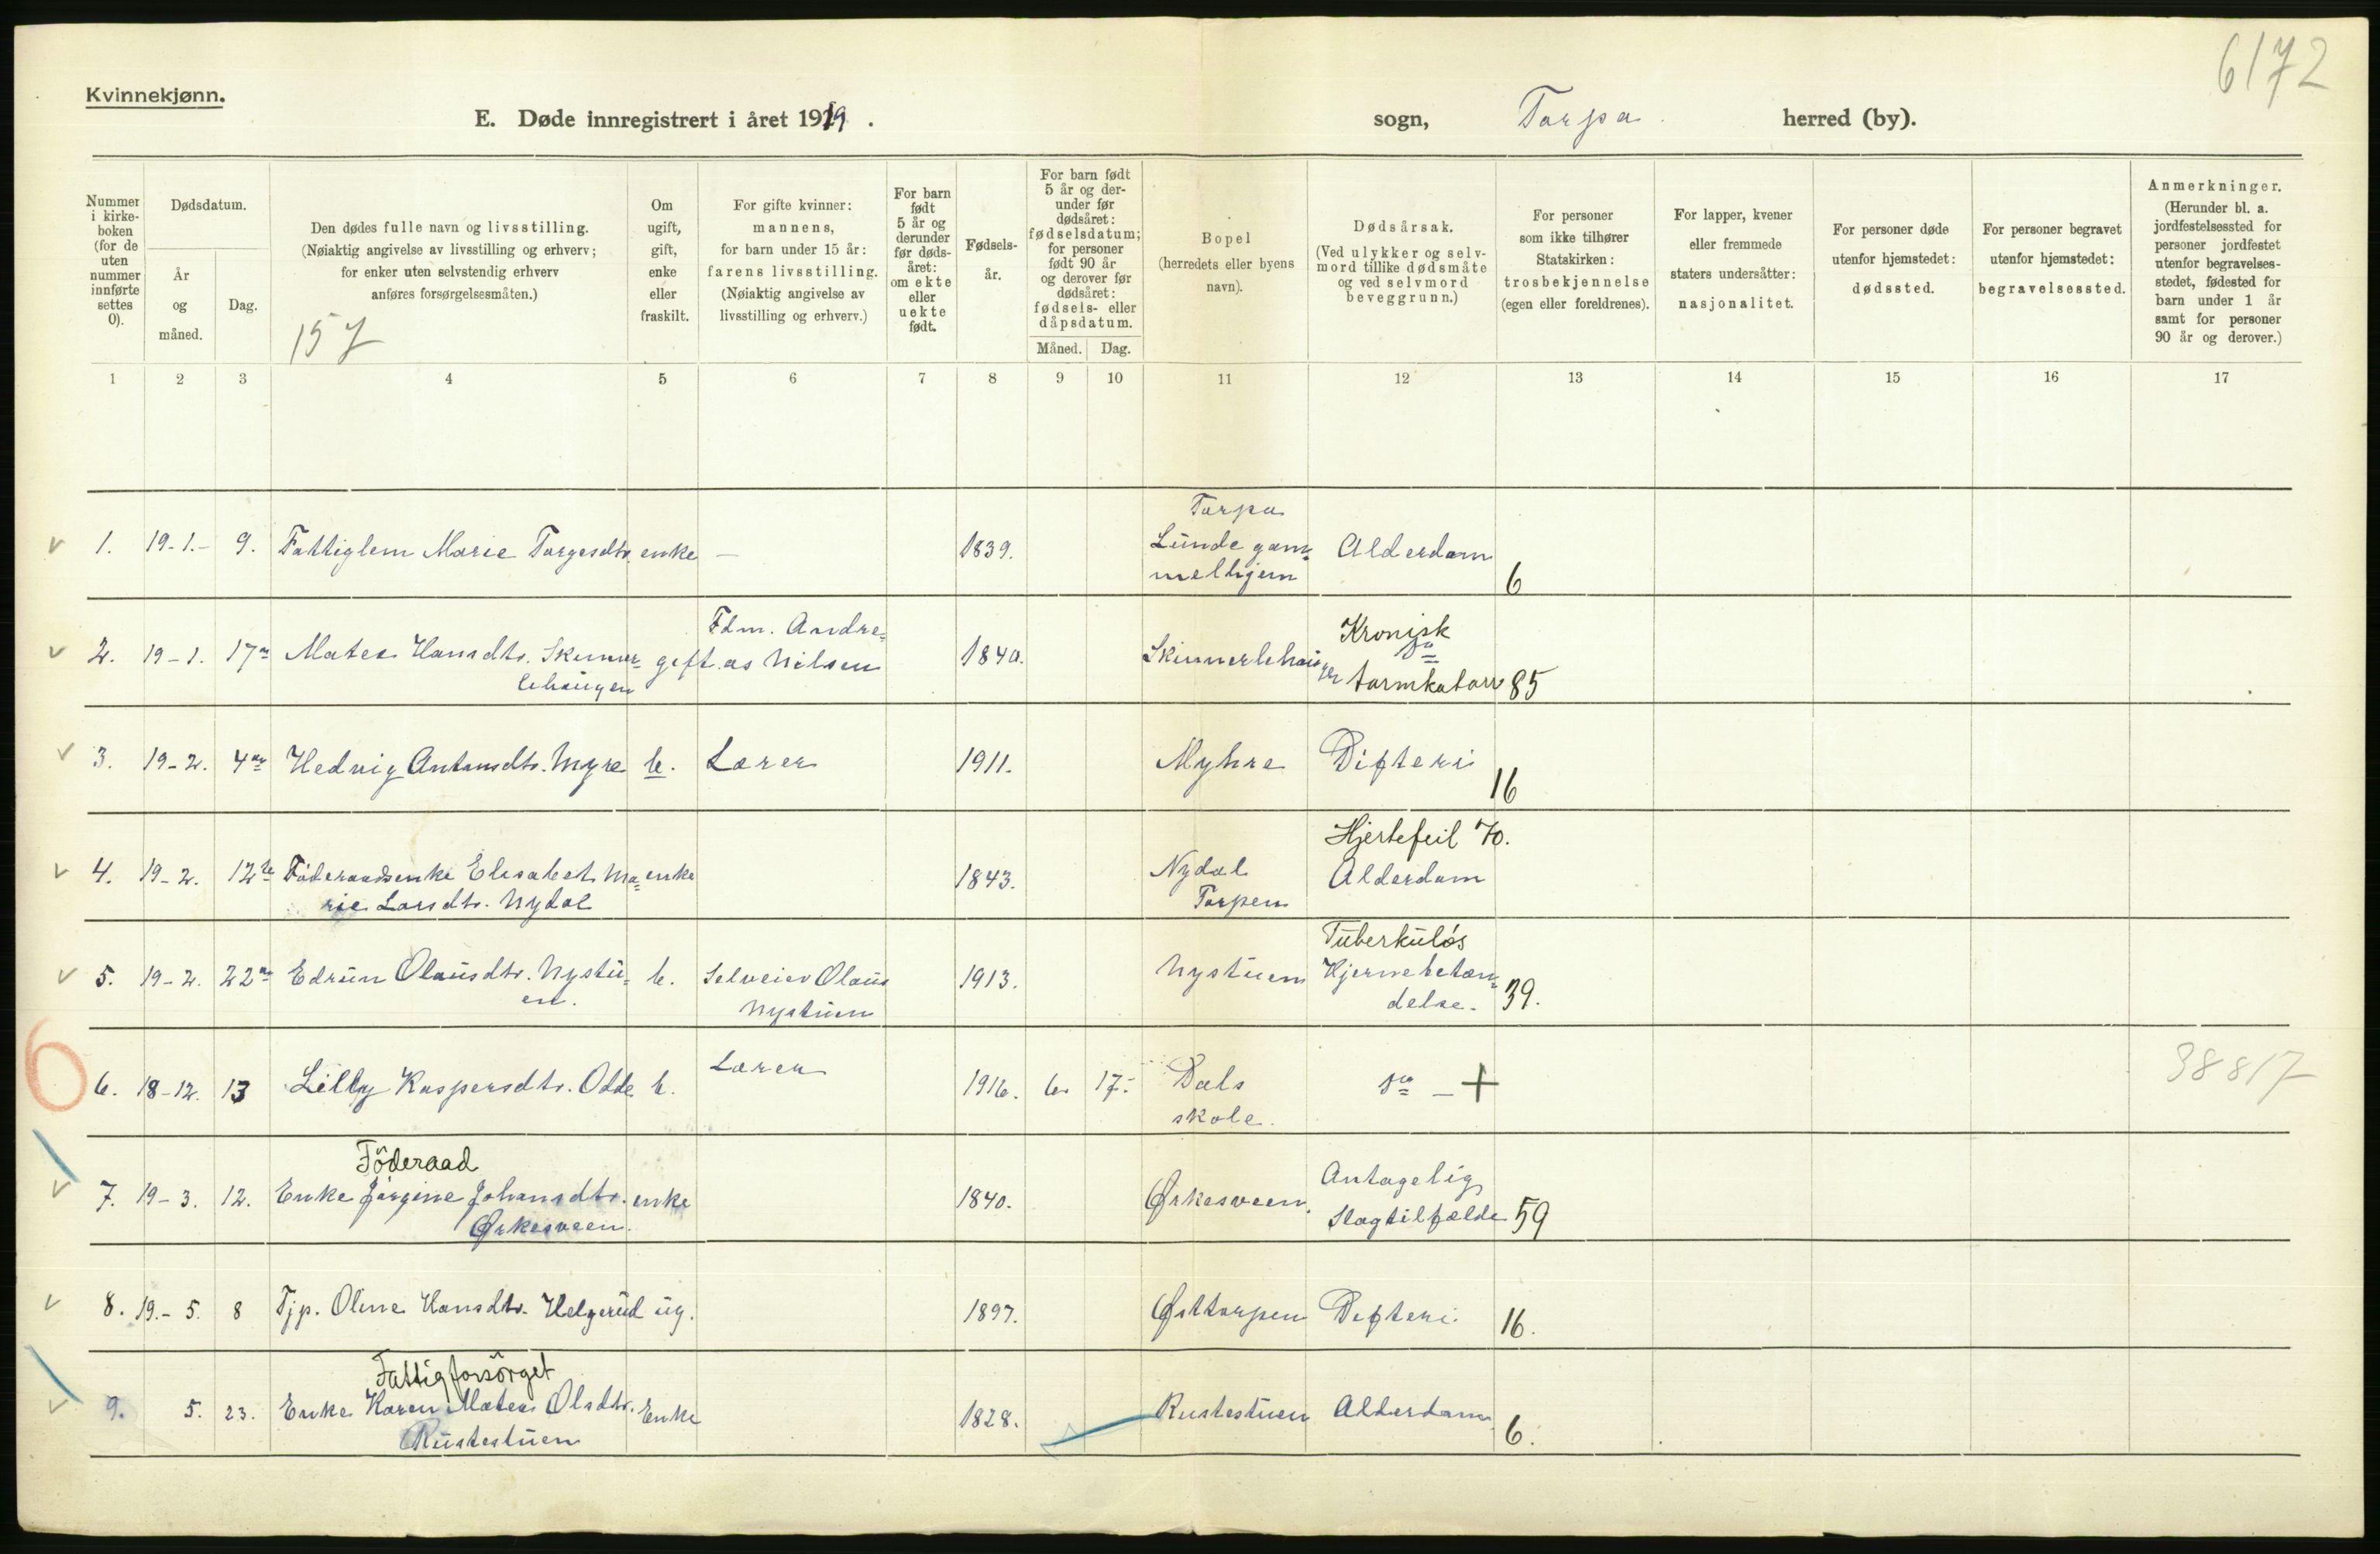 6172
Kvinnekjønn.
E. Døde innregistrert i året 1919 . sogn, Torpa. herred (by).
Nummer i kirke- boken (for de uten nummer innførte settes 0).
Dødsdatum.
År og måned.
Dag.
Den dødes fulle navn og livsstilling.
(Nøiaktig angivelse av livsstilling og erhverv;
for enker uten selvstendig erhverv
anføres forsørgelsesmåten.)
157
Om ugift, gift, enke eller fraskilt.
For gifte kvinner:
mannens,
for barn under 15 år:
farens livsstilling.
(Nøiaktig angivelse av
livsstilling og erhverv.)
For barn født 5 år og derunder før døds- året: om ekte eller uekte født.
Fødsels- år.
For barn født 5 år og der- under før dødsåret: fødselsdatum; for personer født 90 år og derover før dødsåret: fødsels- eller dåpsdatum.
Måned. Dag.
Bopel
(herredets eller byens
navn).
Dødsårsak.
(Ved ulykker og selv-
mord tillike dødsmåte
og ved selvmord
beveggrunn.)
For personer
som ikke tilhører
Statskirken:
trosbekjennelse
(egen eller foreldrenes).
For lapper, kvener
eller fremmede
staters undersåtter:
nasjonalitet.
For personer døde
utenfor hjemstedet:
dødssted.
For personer begravet
utenfor hjemstedet:
begravelsessted.
Anmerkninger.
(Herunder bl. a.
jordfestelsessted for
personer jordfestet
utenfor begravelses-
stedet, fødested for
barn under 1 år
samt for personer
90 år og derover.)
1 2 3 4 5 6 7 8 9 10 11 12 13 14 15 16 17
Torpa
1. 19-1.- 9. Fattiglem Marie Torgersdtr. enke — 1839. Lunde gam- Alderdom
melhjem 6
Fdm. Andre- Kronisk
2. 19-1. 17de Mathea Hansdtr. Skinner- gift. as Nilsen 1840. Skinnerlehaug
lehaugen tarmkatarr 85
3. 19-2. 4de Hedvig Antonsdtr. Myre b. Lærer 1911. Myhre Difteri
16
Hjertefeil 70.
4. 19-2. 12te Føderaadsenke Elisabet Ma- enke 1843. Nydal Alderdom
rie Larsdtr. Nydal Torpen
Tuberkuløs
5. 19-2. 22de Edrun Olausdtr. Nystu- b. Selveier Olaus 1913. Nystuen Hjernebetæn-
en. Nystuen delse. 39.
6
6. 18-12. 13 Lilly Kaspersdtr. Odde b. Lærer 1916. 6. 17. Dals do — + 38817
skole.
Föderaad Antagelig
7. 19-3. 12. Enke Jørgine Johansdtr. enke 1840. Ørkesveen. Slagtilfælde 59
Ørkesveen.
8. 19.- 5. 8 Tjp. Oline Hansdtr. Helgerud ug. 1897. Østtorpen Difteri. 16.
Fattigforsörget
9. 5. 23. Enke Karen Matea Olsdtr. Enke 1828. Rustestuen Alderdom 6.
Rustestuen